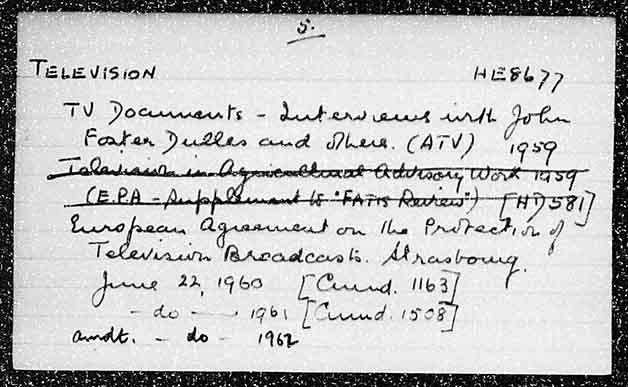 5.
TELEVISION HE8677
TV Documents - Interviews with John
Foster Dulles and others. (ATV) 1959
Television in Agricultural Advisory Work 1959
(E.P.A - Supplement to "FATIS Review") [HD 581]
European Agreement on the Protection of
Television Broadcasts. Strasbourg.
June 22, 1960 [Cmnd. 1163]
- do - 1961 [Cmnd. 1508]
amdt. - do - 1962